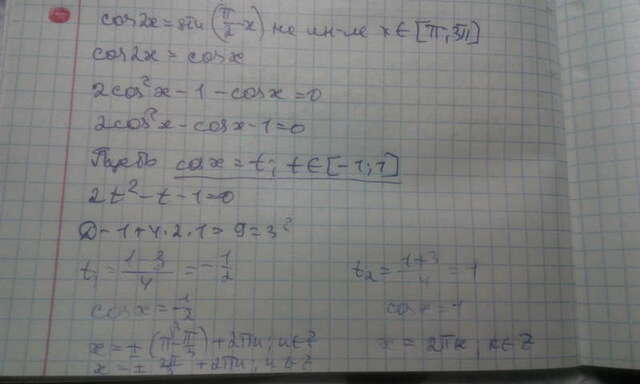 cos2x = sin(π/2 - x) на ин-ле x ∈ [π; 3π]
cos2x = cosx
2cos²x - 1 - cosx = 0
2cos²x - cosx - 1 = 0
Пусть cosx = t; t ∈ [-1; 1]
2t² - t - 1 = 0
D = 1 + 4·2·1 = 9 = 3²
t₁ = (1-3)/4 = -1/2 t₂ = (1+3)/4 = 1
cosx = -1/2 cosx = 1
x = ± (π - π/3) + 2πn; n ∈ Z x = 2πk, k ∈ Z
x = ± 2π/3 + 2πn; n ∈ Z